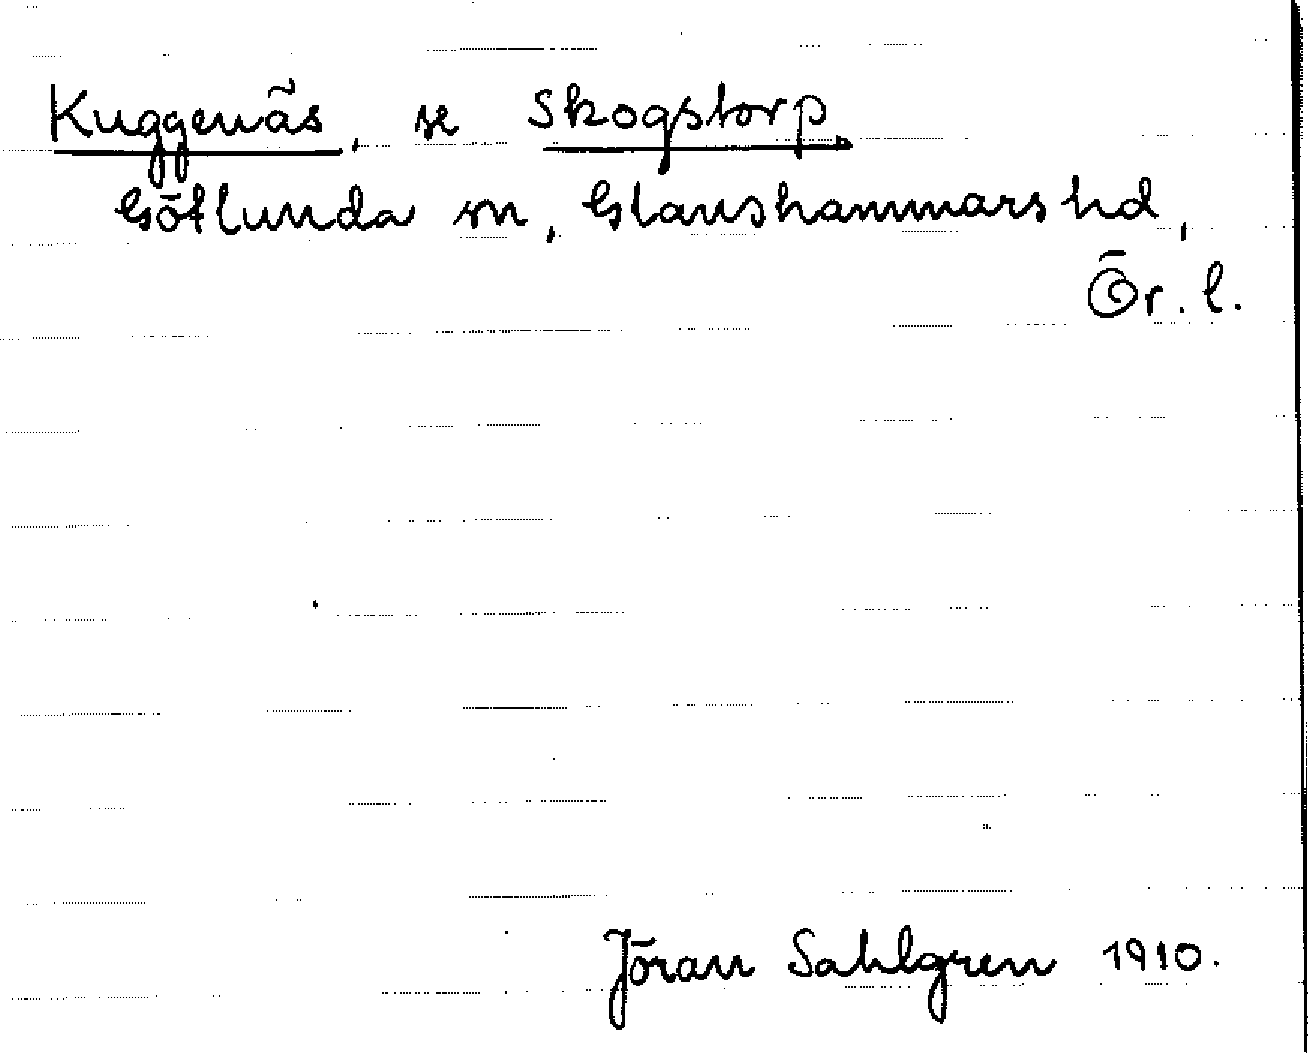 Kuggenäs, se Skogstorp
Götlunda sn, Glanshammars hd,
Ör. l.
Jöran Sahlgren 1910.